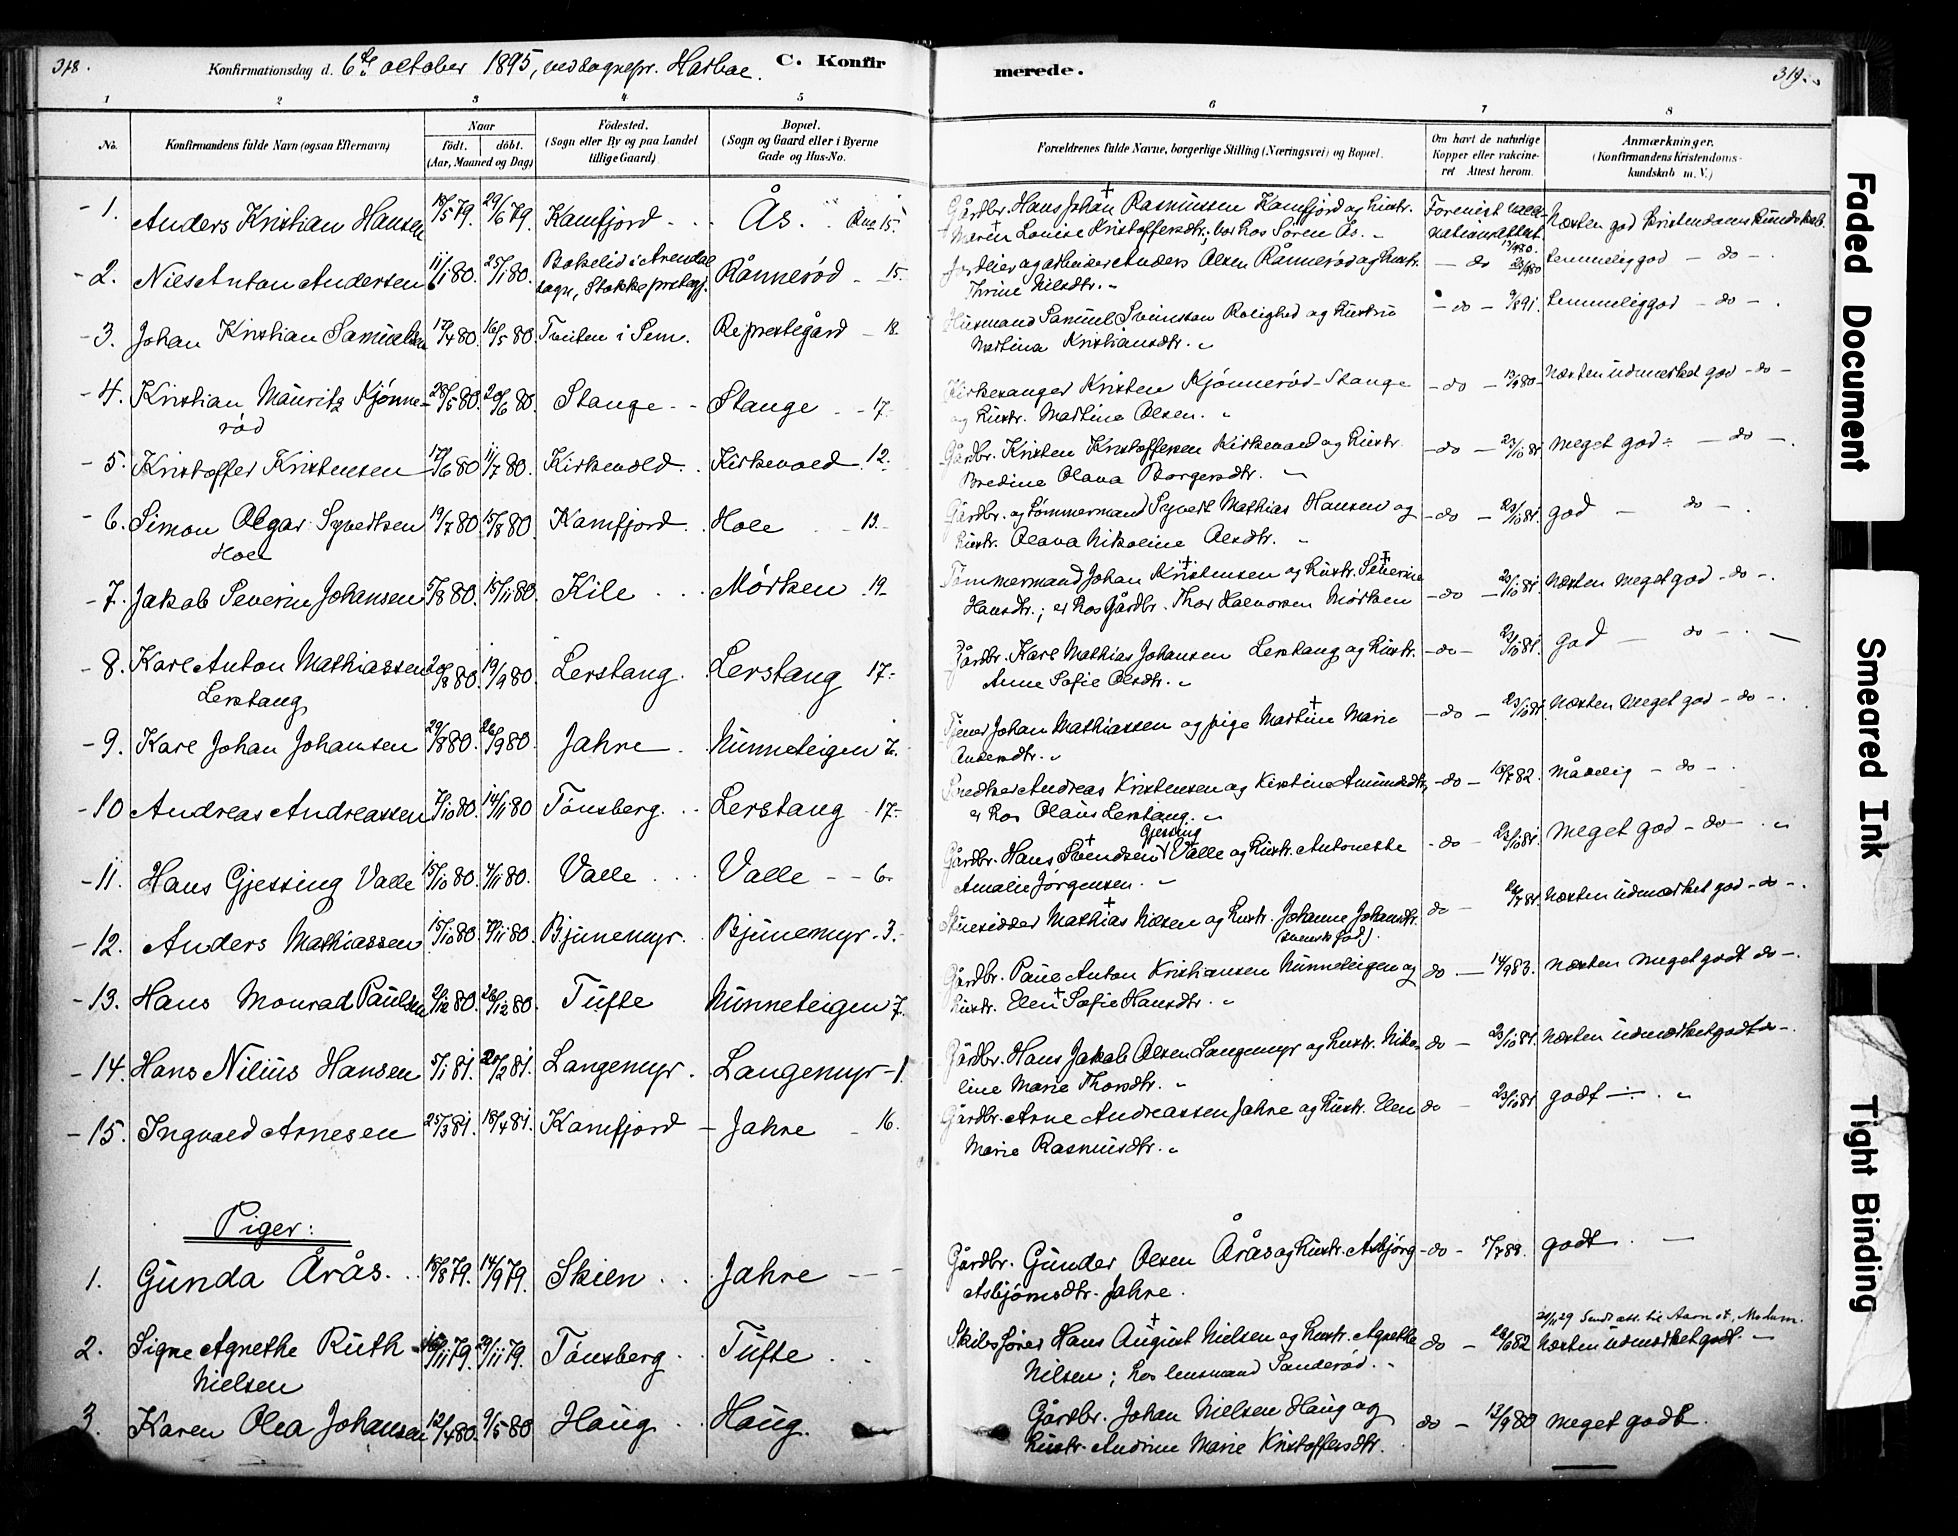 378.
Konfirmationsdag d. 6te october 1895, ved sognepr. Harboe. C. Konfir
merede.
319.
1 2 3 4 5
6 7 8
No.
Konfirmandens fulde Navn (ogsaa Efternavn)
Naar
født. døbt.
(Aar, Maaned og Dag)
Fødested.
(Sogn eller By og paa Landet
tillige Gaard).
Bopæl.
(Sogn og Gaard eller i Byerne
Gade og Hus-No.
Forældrenes fulde Navne, borgerlige Stilling (Næringsvei) og Bopæl.
Om havt de naturlige
Kopper eller vakcine-
ret Attest herom.
Anmærkninger.
(Konfirmandens Kristendoms-
kundskab m. V.)
1. Anders Kristian Hansen 18/5 79. 29/6 79. Kamfjord Ås. 15.
Gårdbr. Hans Johan Rasmussen Kamfjord og hustr.
Maren Louise Kristoffersdtr.; bor hos Søren Ås.
Næsten god Kristendomskundskab.
2. Nils Anton Andersen 11/1 80. 25/1 80. Bakelid i Arendal
sogn, Stokke prstegj. Rånnerød 15.
og arbeider Anders Olsen Rånnerød og hustr.
Thrine Nilsdtr.
do 23/9 80 temmelig god do
3. Johan Kristian Samuelsen 17/4 80. 16/5 80. i Sem. Re prestegård 18.
Husmand Samuel Svensson Rolighed og hustru
Martina Kristiansdtr.
do 9/6 91. temmelig god do
4. Kristian Mauritz Kjønne-
rød 28/5 80. 20/6 80. Stange Stange 17.
Kirkesanger Kristen Kjønnerød-Stange
og hustr. Martine Olsen.
do 13/9 80 Næsten udmærket god do
5. Kristoffer Kristensen 17/6 80. 11/7 80. Kirkevold Kirkevold 12.
Gårdbr. Kristen Kristoffersen Kirkevold og hustr.
Bredine Olava Borgersdtr.
do 23/10 81. meget god do
6. Simon Olgar Syvertsen
Hole 19/7 80. 15/8 80. Kamfjord Hole 13.
Gårdbr. og tømmermand Syvert Mathias Hansen og
hustr. Olava Nikoline Olsdtr.
do 23/10 81. god do
7. Jakob Severin Johansen 5/8 80. 15/11 80. Kile Mørken 19.
Tømmermand Johan Kristensen og hustr. Severine
Hansdtr.; er hos Gårdbr. Thor Halvorsen Mørken
do 23/10 81. Næsten meget god do
8. Karl Anton Mathiassen
Lerstang 20/8 80. 19/9 80. Lerstang. Lerstang 17.
Gårdbr. Karl Mathias Johansen Lerstang og hustr.
Anne Sofie Olsdtr.
do 23/10 81. god do
9. Karl Johan Johansen 29/8 80. 26/9 80. Jahre Nunneteigen 7.
Tjener Johan Mathiassen og pige Martine Marie
Andersdtr.
do 23/10 81. Næsten meget god do
10 Andreas Andreassen 7/10 80. 14/11 80 Tønsberg. Lerstang 17.
Snedker Andreas Kristensen og Kirstine Amundsdtr.,
er hos Olaus Lerstang.
do 18/7 82. måtelig do
11. Hans Gjessing Valle 15/10 80. 7/11 80. Valle Valle 6.
Gårdbr. Hans Svendsen Gjessing Valle og hustr. Antonette
Amalie Jørgensen.
do 23/10 81. Meget god do
12. Anders Mathiassen 15/10 80. 7/11 80. Bjunemyr. Bjunemyr 3.
Stuesidder Mathias Nilsen og hustr. Johanne Johansdtr.
(svensk fød).
do Næsten udmærket god do
13. Hans Monrad Paulsen 2/12 80. 26/12 80. Tufte Nunneteigen 7.
Gårdbr. Paul Anton Kristiansen Nunneteigen og
hustr. Elen Sofie Hansdtr.
do 14/9 83. næsten meget godt do
14. Hans Nilius Hansen 5/1 81. 20/2 81. Langemyr. Langemyr 1.
Gårdbr. Hans Jakob Olsen Langemyr og hustr. Niko-
line Marie Thorsdtr.
do 23/10 81. Næsten udmærket godt do
15. Ingvald Arnesen 25/3 81. 18/4 81. Kamfjord Jahre 16.
Gårdbr. Arne Andreassen Jahre og hustr. Elen
Marie Rasmusdtr.
do 23/10 81 godt
Piger:
1. Gunda Årås. 18/8 79. 14/9 79. Skien Jahre
Gårdbr. Gunder Olsen Årås og hustr. Asbjørg
Asbjørnsdtr. Jahre.
do godt
2. Signe Agnethe Ruth
Nielsen 29/11 79. Tønsberg Tufte
Skibsfører Hans August Nielsen og hustr. Agnethe
Nilsen; hos lensmand Sanderød.
do Næsten udmærket godt.
Sendt att. til Modum.
3. Karen Olea Johansen 12/4 80. 9/5 80 Haug Haug.
Gårdbr. Johan Nielsen Haug og
hustr. Andrine Marie Kristoffersdtr.
do 13/9 80 meget godt.
Faded Document
Smeared Ink
Tight Binding